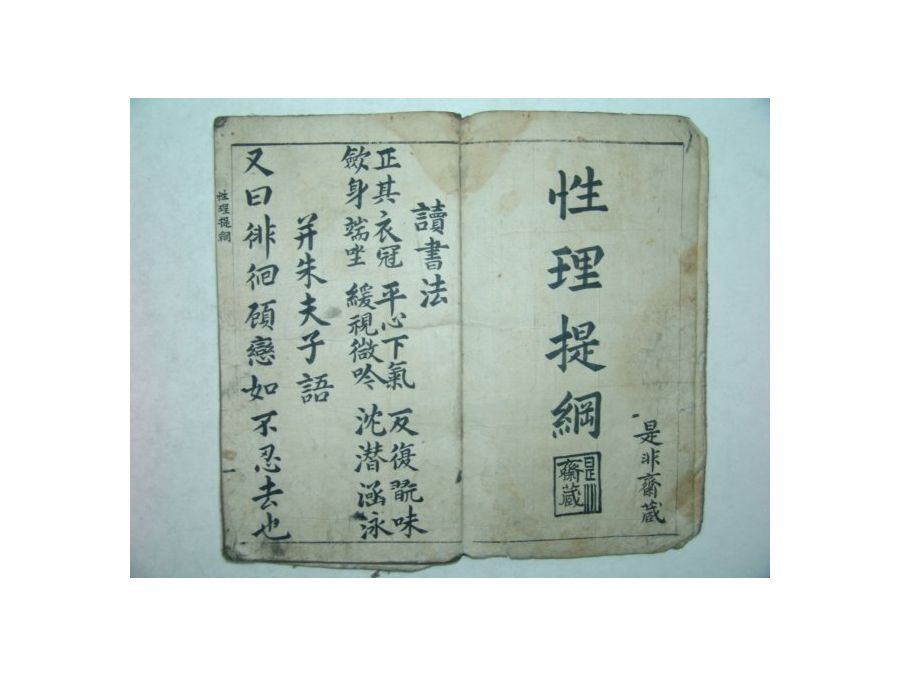 是非齋蔵
性理提綱
是非齋蔵
讀書法
正其衣冠 平心下氣 反復翫味
歛身端坐 緩視微吟 沈潜涵泳
并朱夫子語
又曰徘徊頋戀如不忍去也
性理提綱